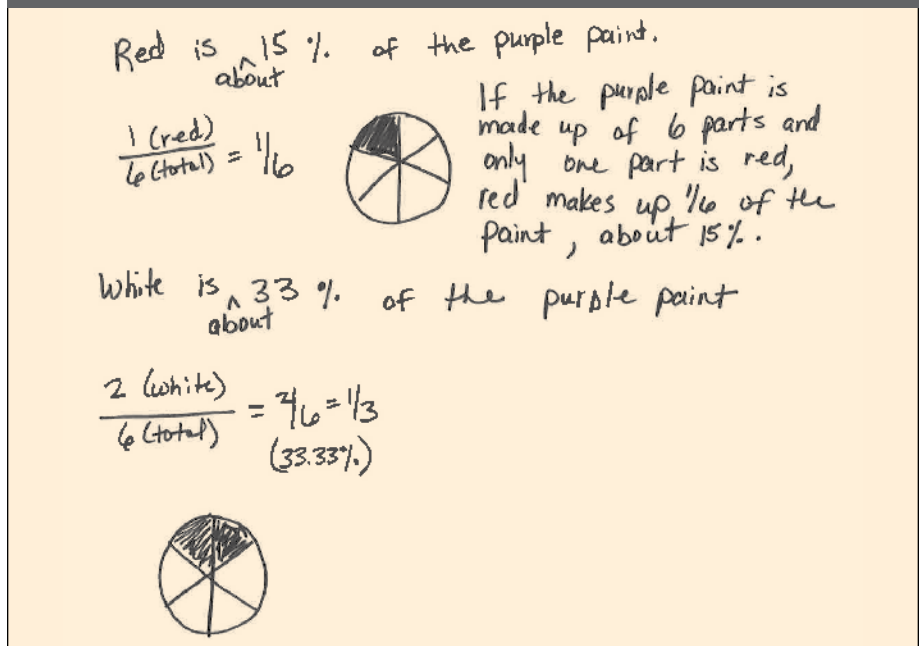 Red is ^ 15 % of the purple paint.
about
1 (red)
6 (total) = 1/6
If the purple paint is
made up of 6 parts and
only one part is red,
red makes up 1/6 of the
paint, about 15%.
White is ^ 33 % of the purple paint
about
2 (white)
6 (total) = 2/6 = 1/3
(33.33%)